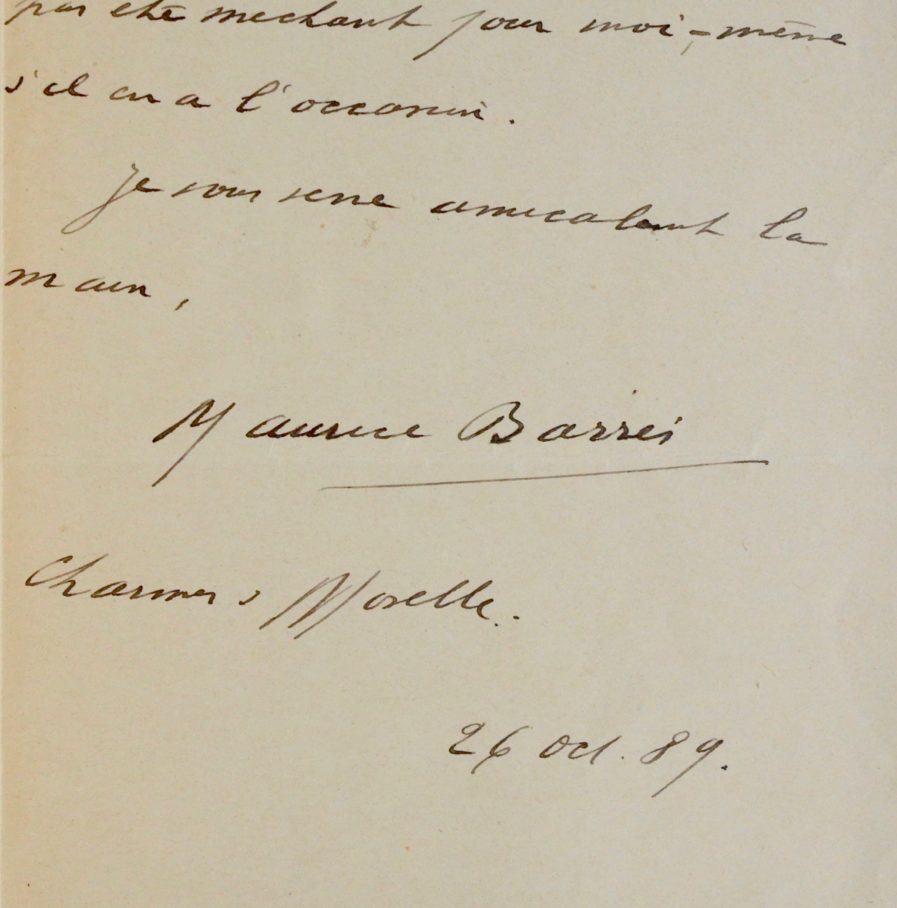 pas été méchant pour moi-même
s'il en a l'occasion.
Je vous serre amicalement la
main,
Maurice Barrès
Charmes s Moselle.
26 Oct. 89.